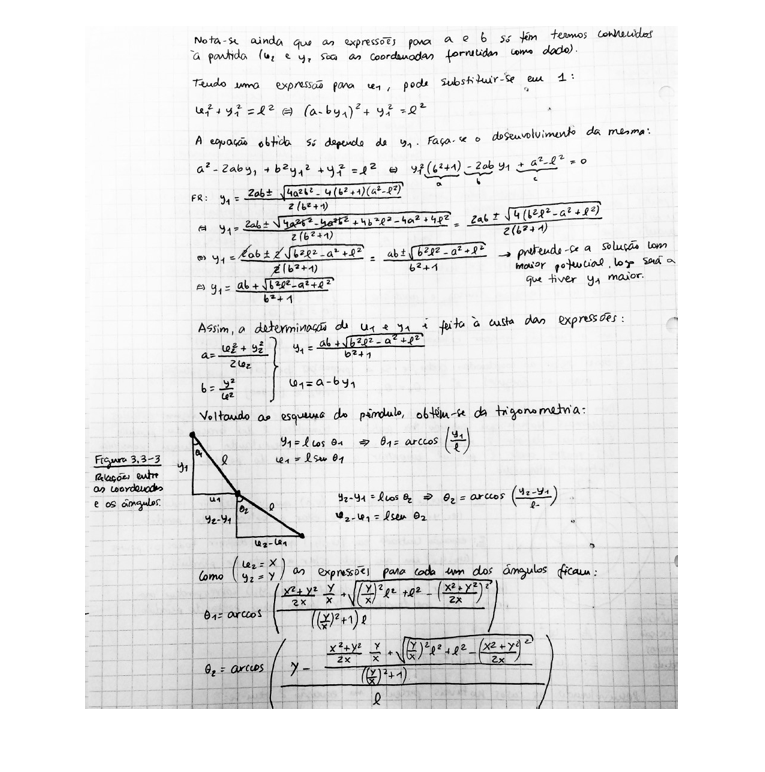 Nota-se ainda que as expressões para a e b só têm termos conhecidos
à partida (u₂ e y₂ são as coordenadas fornecidas como dado).
Tendo uma expressão para u₁, pode substituir-se em 1:
u₁² + y₁² = l² ⇔ (a-by₁)² + y₁² = l²
A equação obtida só depende de y₁. Faça-se o desenvolvimento da mesma:
a² - 2aby₁ + b²y₁² + y₁² = l² ⇔ y₁²(b²+1) - 2ab y₁ + a²-l² = 0
a b c
FR: y₁ = (2ab ± √(4a²b² - 4(b²+1)(a²-l²))) / 2(b²+1)
⇔ y₁ = (2ab ± √(4a²b² - 4a²b² + 4b²l² - 4a² + 4l²)) / 2(b²+1) = (2ab ± √(4(b²l² - a² + l²))) / 2(b²+1)
⇔ y₁ = (2ab ± 2√(b²l² - a² + l²)) / 2(b²+1) = (ab ± √(b²l² - a² + l²)) / b²+1 → pretende-se a solução com
maior potencial, logo será a
que tiver y₁ maior.
⇔ y₁ = (ab + √(b²l² - a² + l²)) / b²+1
Assim, a determinação de u₁ e y₁ é feita à custa das expressões:
a = (u₂² + y₂²) / 2u₂ } y₁ = (ab + √(b²l² - a² + l²)) / b²+1
b = y² / u² u₁ = a - by₁
Voltando ao esquema do pêndulo, obtém-se da trigonometria:
y₁ = l cos θ₁ ⇒ θ₁ = arccos (y₁/l)
u₁ = l sen θ₁
Figura 3.3-3
Relações entre
as coordenadas
e os ângulos.
θ₁ l
y₁
u₁ θ₂ l
y₂-y₁
u₂-u₁
y₂-y₁ = l cos θ₂ ⇒ θ₂ = arccos ((y₂-y₁)/l)
u₂-u₁ = l sen θ₂
Como (u₂ = X
y₂ = Y) as expressões para cada um dos ângulos ficam:
θ₁ = arccos (((X²+Y²)/2X Y/X + √((Y/X)² l² + l² - ((X²+Y²)/2X)²)) / ((Y/X)²+1) l)
θ₂ = arccos ((Y - ((X²+Y²)/2X Y/X + √((Y/X)² l² + l² - ((X²+Y²)/2X)²)) / ((Y/X)²+1)) / l)